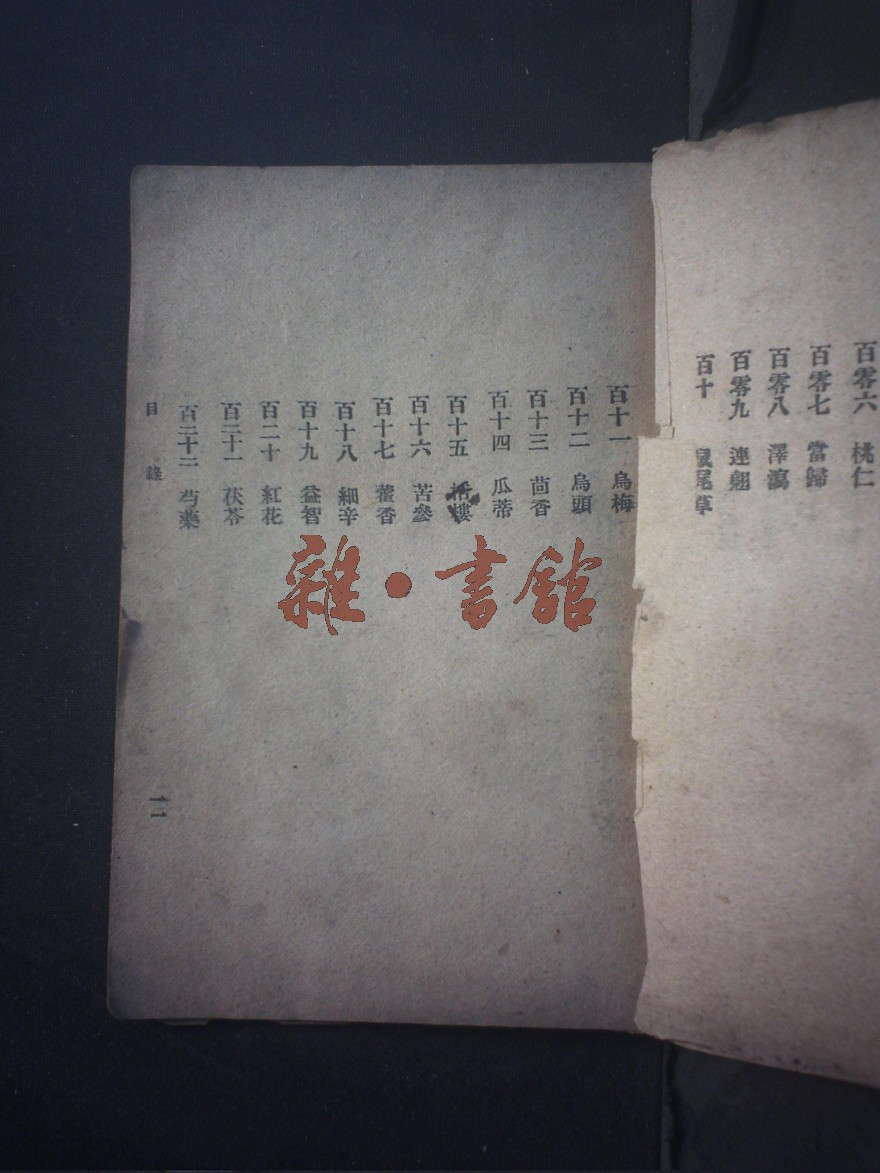 百零六　桃仁
百零七　當歸
百零八　澤瀉
百零九　連翹
百十　鼠尾草
百十一　烏梅
百十二　烏頭
百十三　茴香
百十四　瓜蒂
百十五　樓
百十六　苦參
百十七　藿香
百十八　細辛
百十九　益智
百二十　紅花
百二十一　茯苓
百二十二　芍藥
目錄
二
雜・書館